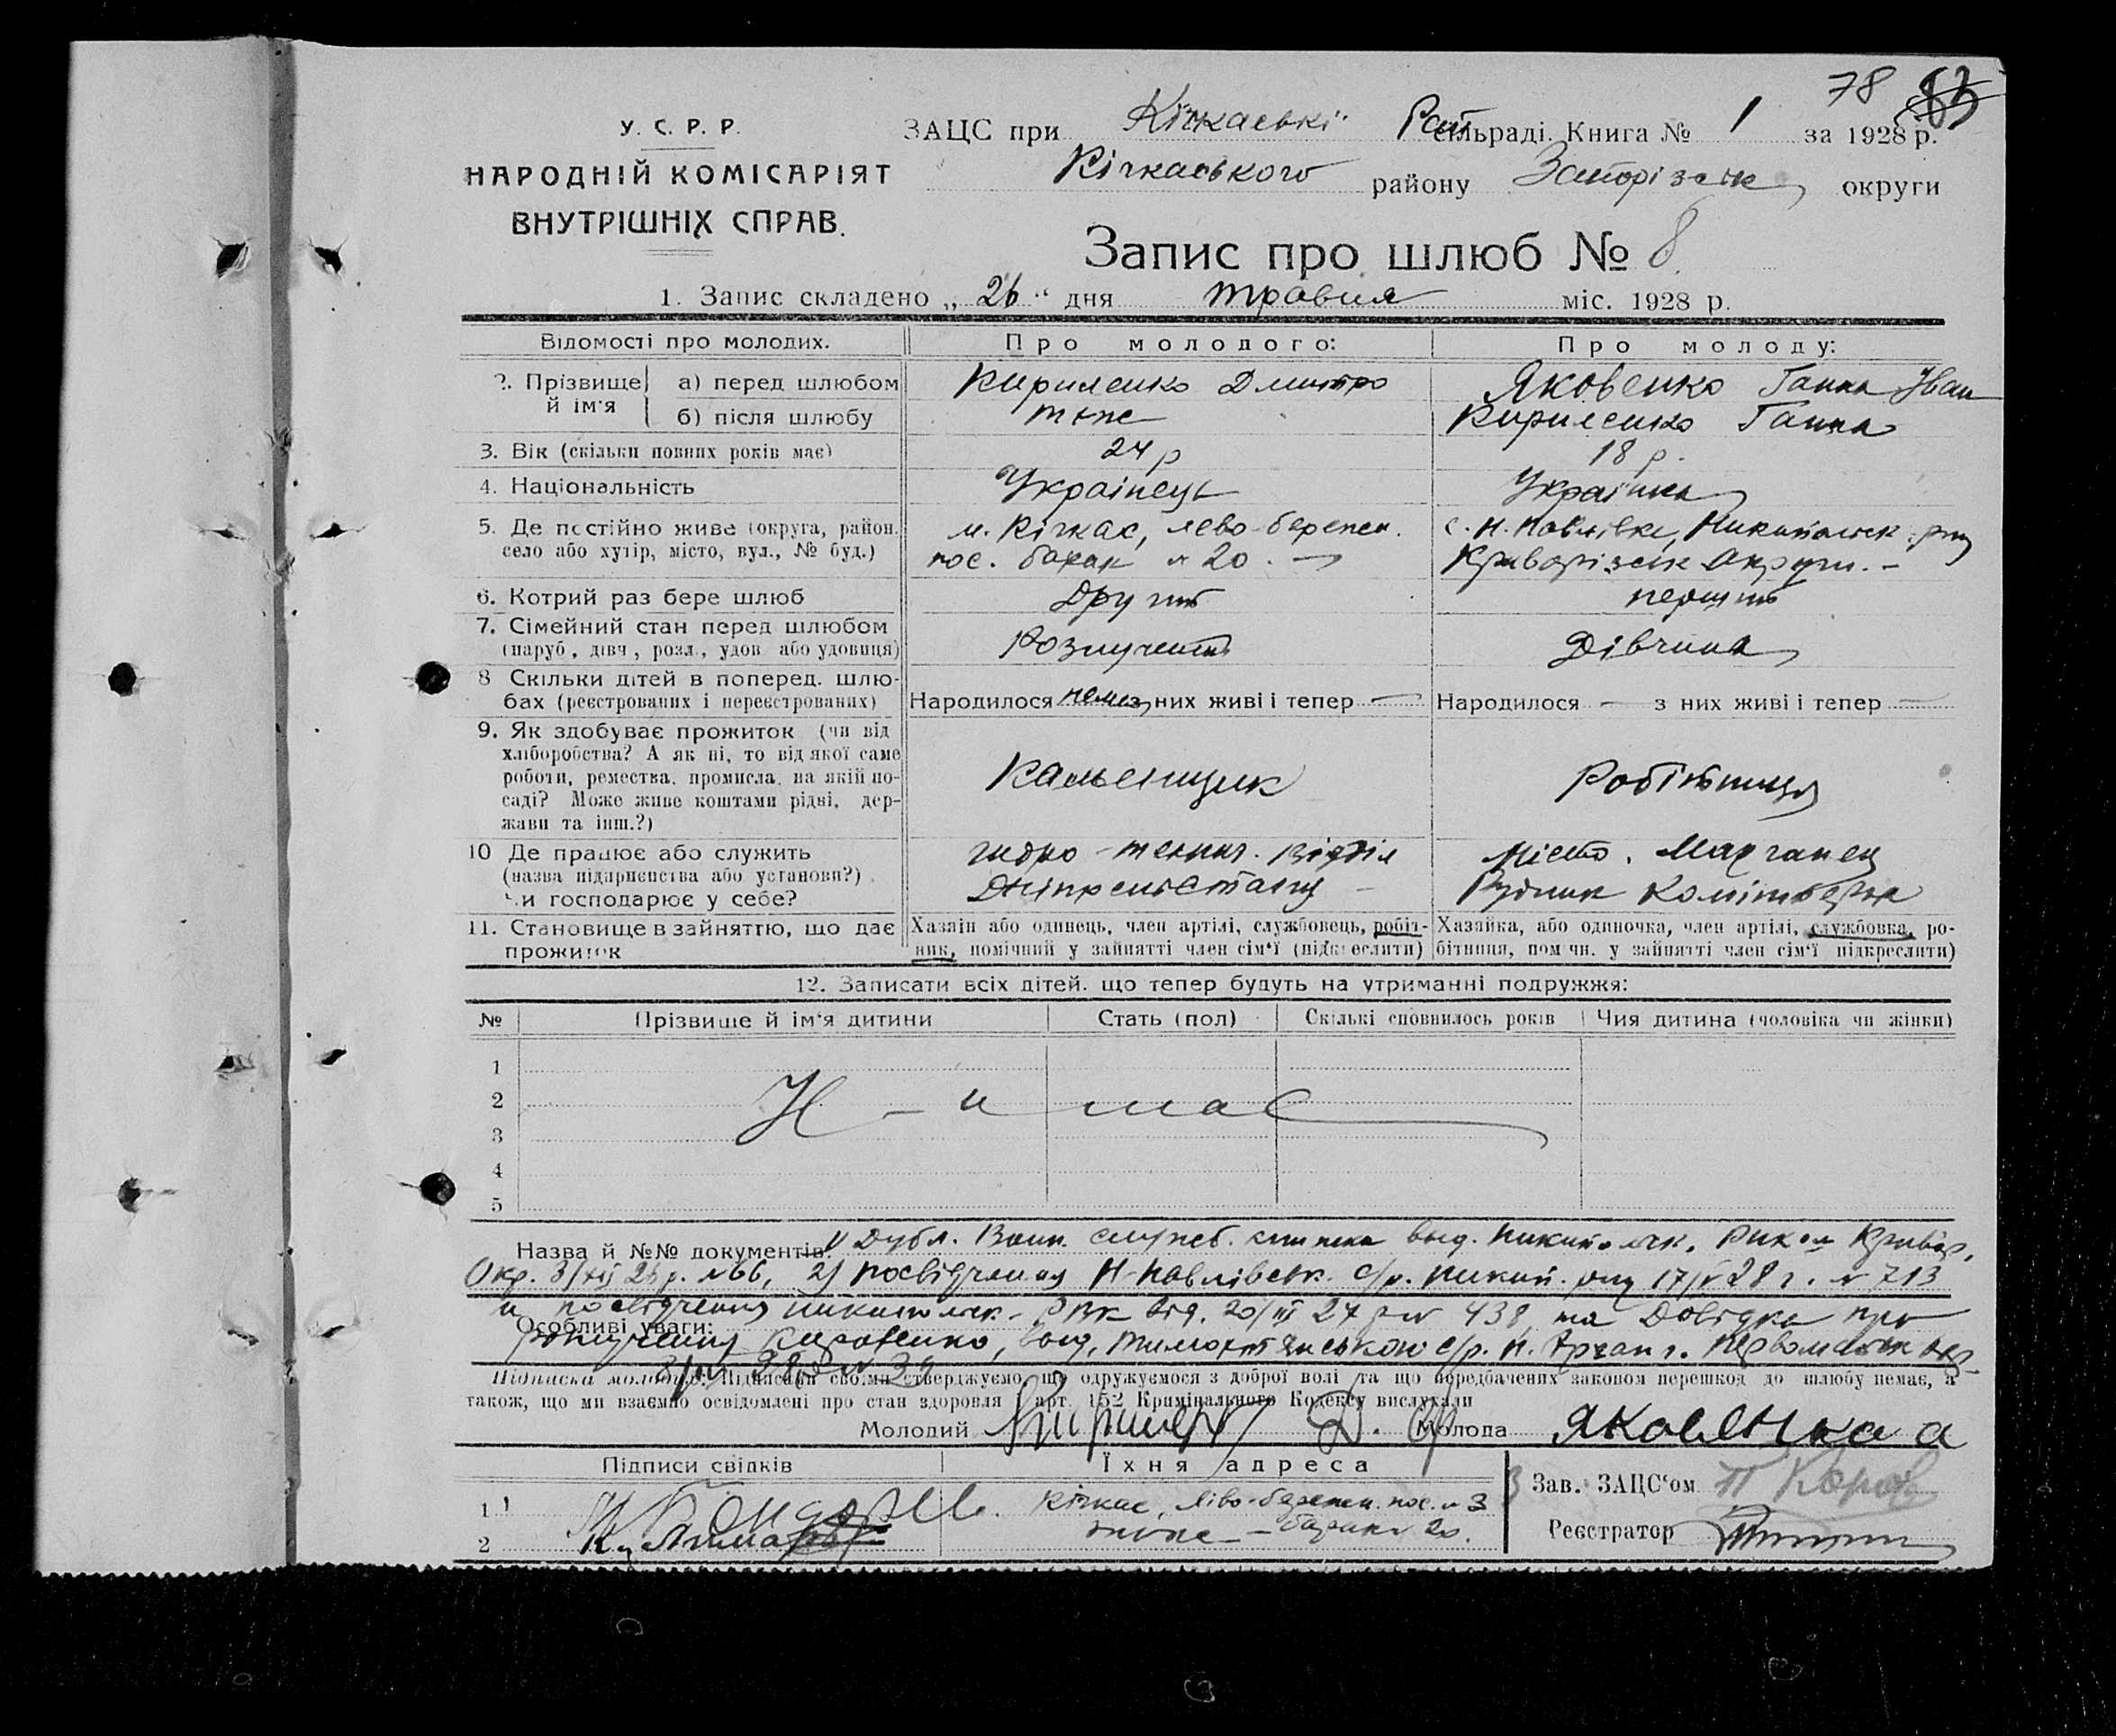 78 83
У. С. Р. Р.
НАРОДНІЙ КОМІСАРІЯТ
ВНУТРІШНІХ СПРАВ.
ЗАЦС при Кічкаські Рай сільраді. Книга № 1 за 1928 р.
Кічкаського району Запорізьк округи
Запис про шлюб № 8
1. Запис складено „ 26 “ дня травня міс. 1928 р.
Відомості про молодих. Про молодого: Про молоду:
2. Прізвище й ім'я а) перед шлюбом Кириленко Дмитро Яковенко Ганна Іван
б) після шлюбу теж Кириленко Ганна
3. Вік (скільки повних років має) 24 р 18 р.
4. Національність Українець Українка
5. Де постійно живе (округа, район. село або хутір, місто, вул., № буд.)
м. Кічкас, лево-бережн. пос. барак № 20.
с. Н. Павлівка, Никопольск. р-ну Криворізьк Округи. -
6. Котрий раз бере шлюб Другий перший
7. Сімейний стан перед шлюбом (паруб., дівч., розл., удов або удовиця) Розлучений Дівчина
8 Скільки дітей в поперед. шлюбах (реєстрованих і нереєстрованих)
Народилося немає з них живі і тепер — Народилося — з них живі і тепер —
9. Як здобуває прожиток (чи від хліборобства? А як ні, то від якої саме роботи, ремества, промисла, на якій посаді? Може живе коштами рідні, держави та інш.?)
Каменщик Робітниця
10 Де працює або служить (назва підприємства або установи?) Чи господарює у себе?
гидро-технич. Відділ Дніпрельстану -
Місто. Марганец Рудник Комінтерна
11. Становище в зайняттю, що дає прожиток
Хазяїн або одинець, член артілі, службовець, робітник, помічний у зайнятті член сім'ї (підкреслити)
Хазяйка, або одиночка, член артілі, службовка, робітниця, помічн. у зайнятті член сім'ї підкреслити)
12. Записати всіх дітей, що тепер будуть на утриманні подружжя:
№ Прізвище й ім'я дитини Стать (пол) Скількі сповнилось років Чия дитина (чоловіка чи жінки)
1
2 Н - и має
3
4
5
Назва й №№ документів: 1) Дубл. Воин. служеб. книжка выд. Никопольск. Риком Кривор.
Окр. 3/XII 25 р. № 66, 2) посвідчення Н-Павлівськ. с/р. Никоп. р-ну 17/V 28 г. № 713
и посвідчення никопольск. РВК від. 20/III 27 р № 438, та Довідка про
Особливі уваги: розлучення Кириленко, выд. с/р. Первомайськ окр.
28 р № 39
Підписка молодих: Підписами своїми стверджуємо, що одружуємося з доброї волі та що передбачених законом перешкод до шлюбу немає, а
також, що ми взаємно освідомлені про стан здоровля і арт. 152 Кримінального Кодексу вислухали
Молодий Кириленко Д. Молода Яковенка а
Підписи свідків Їхня адреса
1 Бондар Кічкас, Ліво-бережн. пос. № 3
2 теж - барак № 20.
Зав. ЗАЦС'ом
Реєстратор